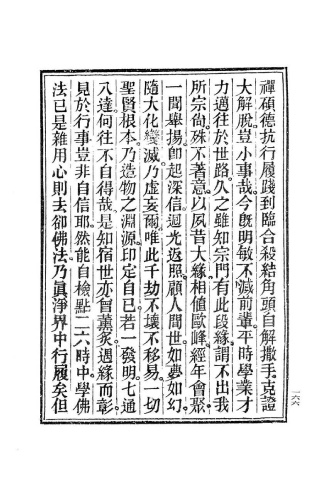 禪碩德抗行履踐到臨合殺結角頭自解撒手克證
大解脫豈小事哉今旣明敏不減前輩平時學業才
力適往於世路久之雖知宗門有此段緣謂不出我
所宗尙殊不著意以夙昔大緣相値歐峰經年會聚
一聞舉揚卽起深信迴光返照顧人間世如夢如幻
隨大化變滅乃虛妄爾唯此千劫不壞不移易一切
聖賢根本乃造物之淵源印定自己若一發明七通
八達何往不自得哉是知宿世亦曾薰炙遇緣而彰
見於行事豈非自信耶然能自檢點二六時中學佛
法已是雜用心則去卻佛法乃眞淨界中行履矣但
一六六